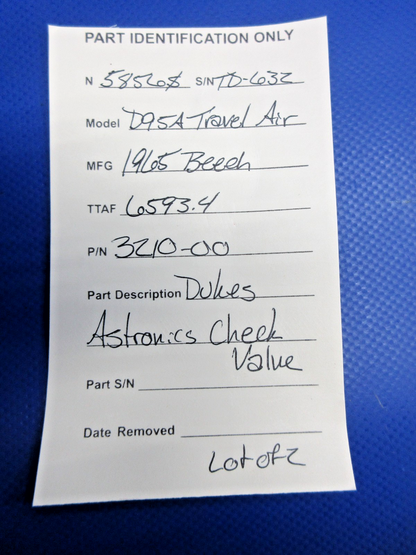 PART IDENTIFICATION ONLY
N 5856S S/N TD-632
Model D95A Travel Air
MFG 1965 Beech
TTAF 6593.4
P/N 3210-00
Part Description Dukes
Astronics Check
Valve
Part S/N
Date Removed
Lot of 2